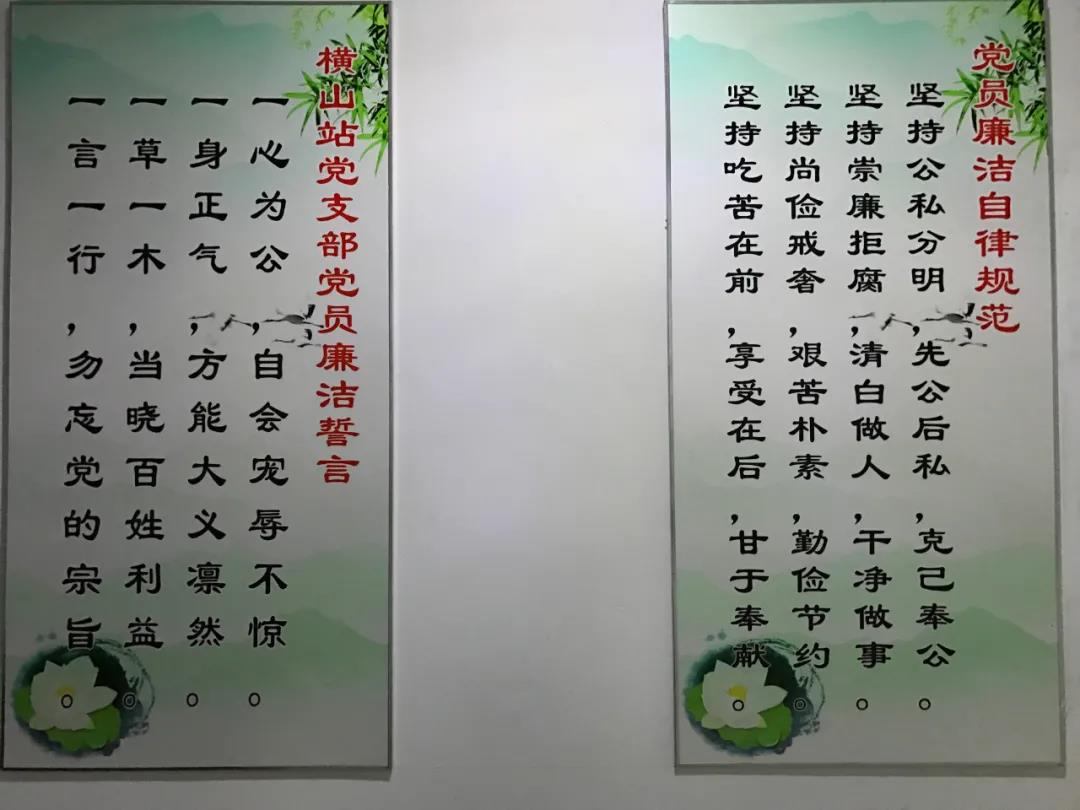 党员廉洁自律规范
坚持公私分明，先公后私，克己奉公。
坚持崇廉拒腐，清白做人，干净做事。
坚持尚俭戒奢，艰苦朴素，勤俭节约。
坚持吃苦在前，享受在后，甘于奉献。
横山站党支部党员廉洁誓言
一心为公，自会宠辱不惊。
一身正气，方能大义凛然。
一草一木，当晓百姓利益。
一言一行，勿忘党的宗旨。